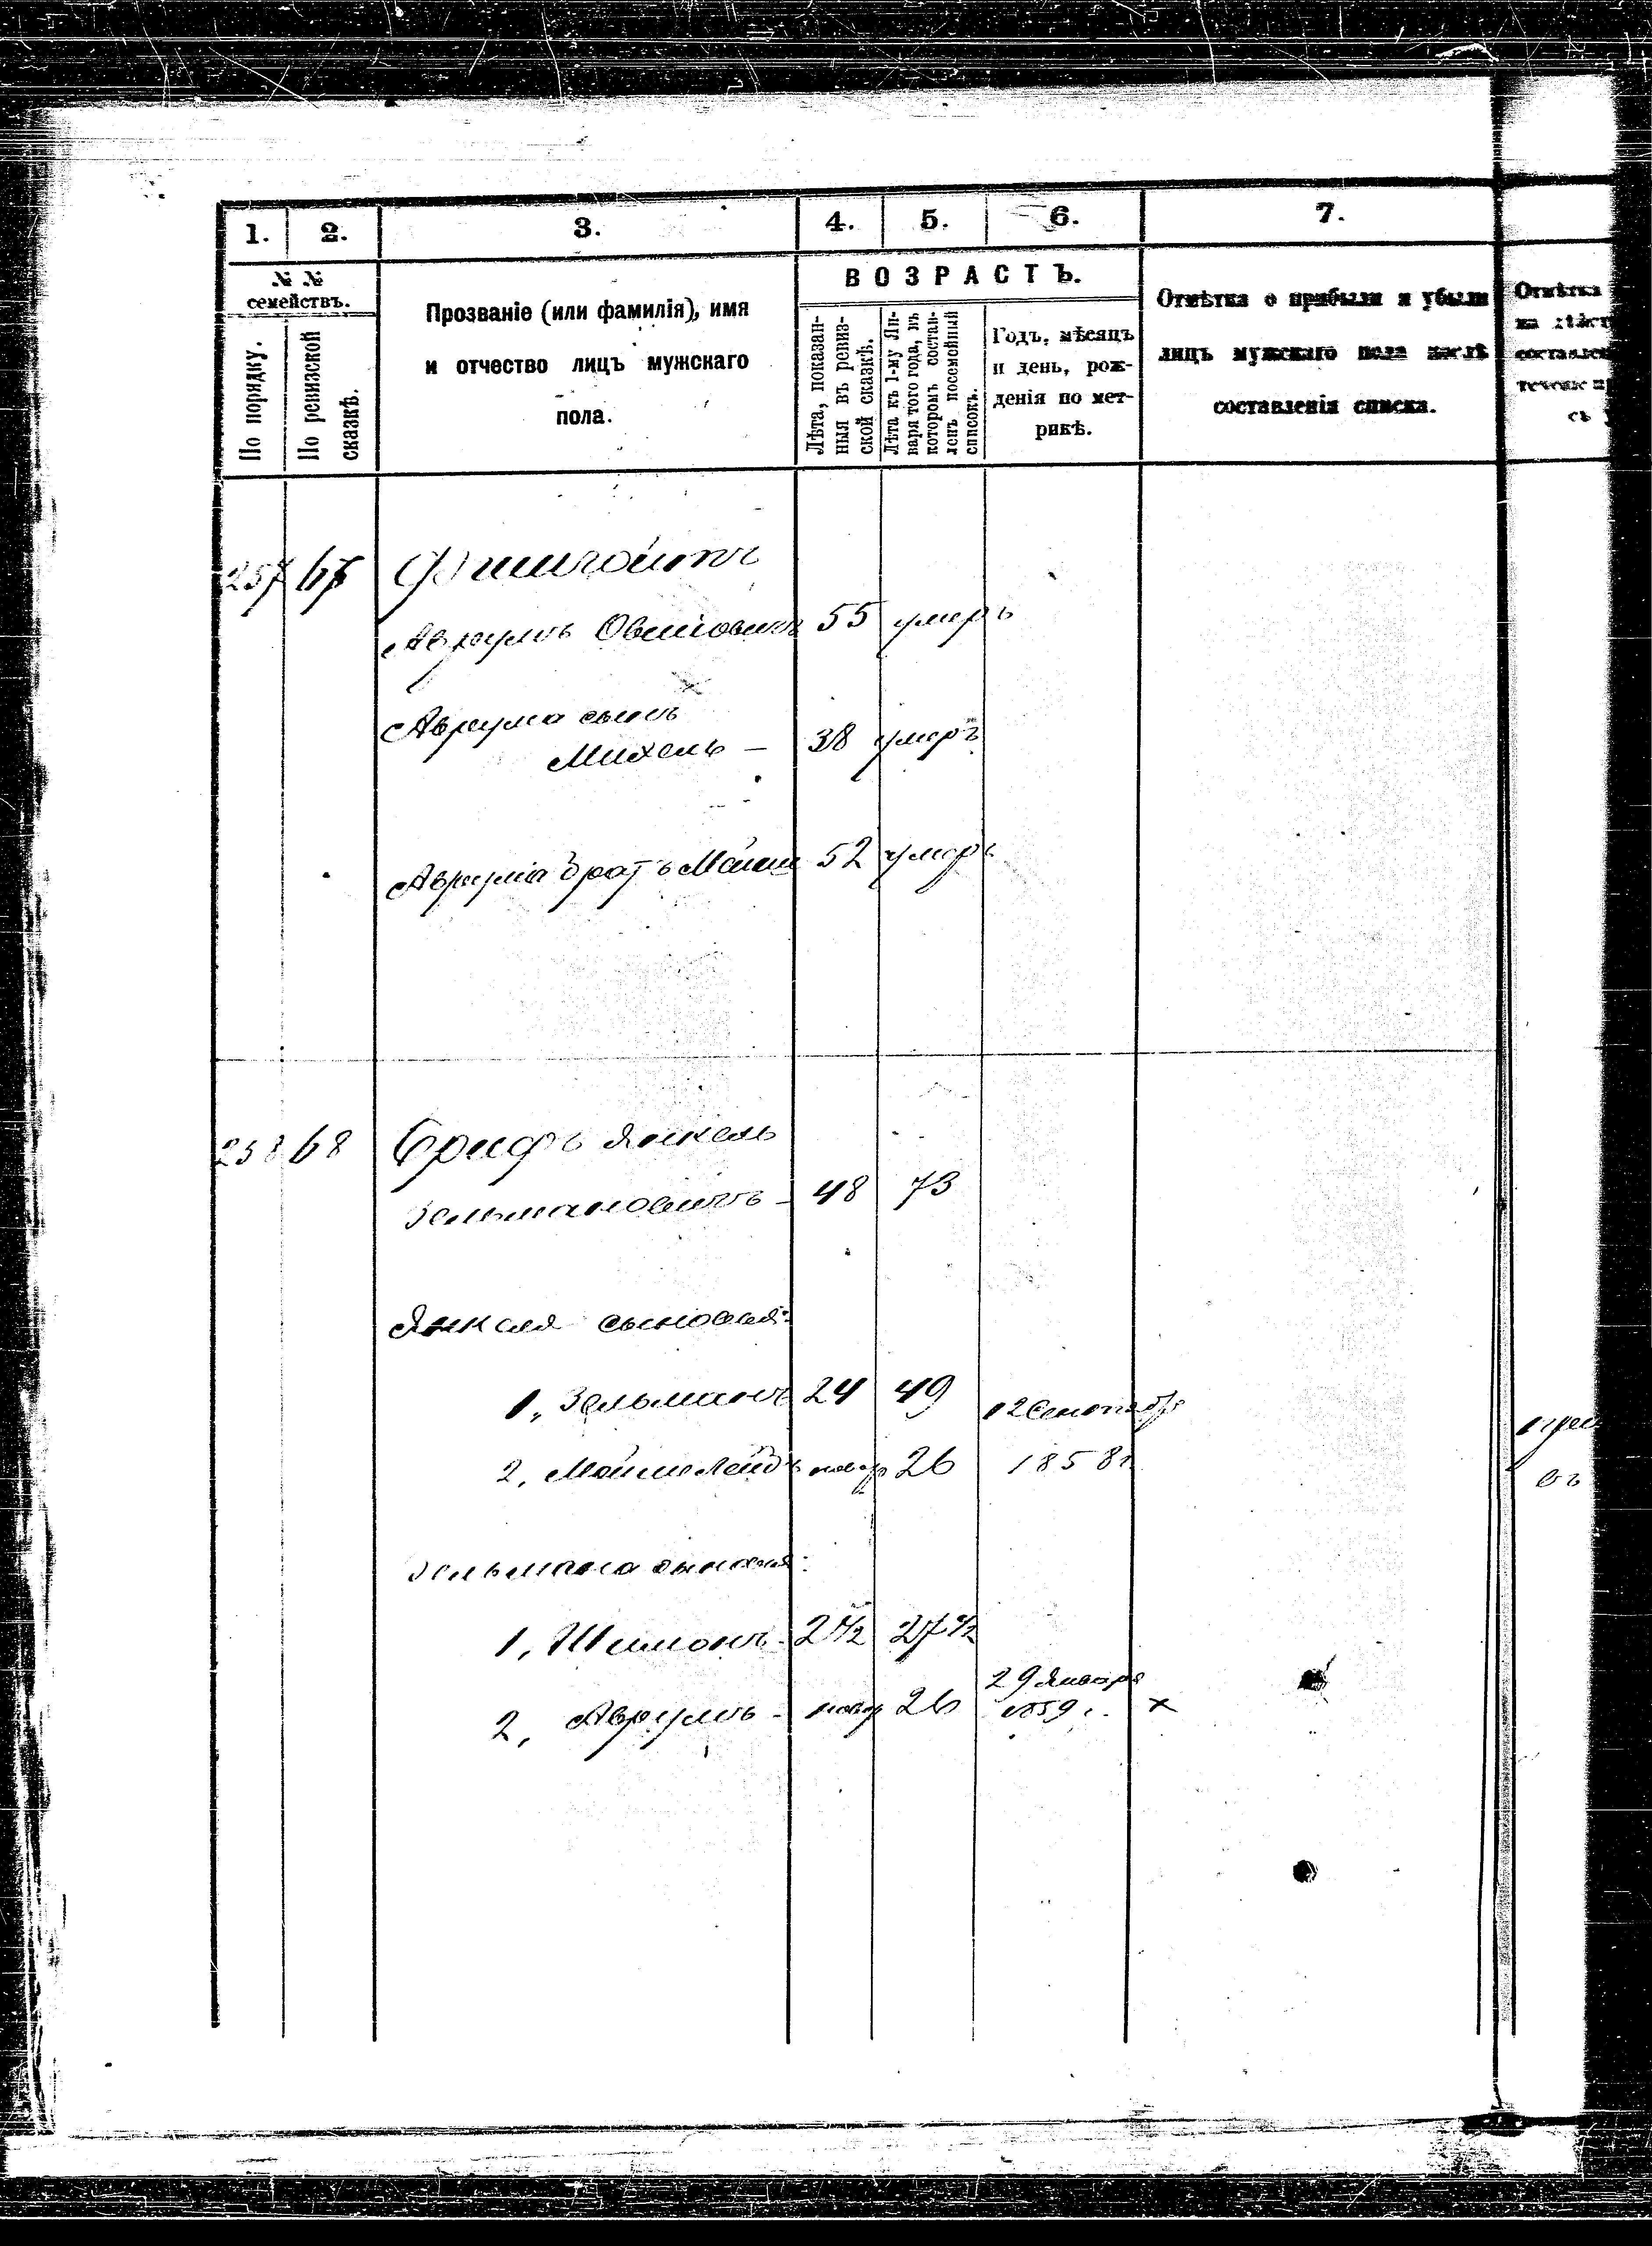 1. 2. 3. 4. 5. 6. 7.
№ №
семействъ.
По порядку.
По ревизской
сказкѣ.
Прозваніе (или фамилія), имя
и отчество лицъ мужскаго
пола.
ВОЗРАСТЪ.
Лѣта, показан-
ныя въ ревиз-
ской сказкѣ.
Лѣта къ 1-му Ян-
варя того года, въ
которомъ состав-
ленъ посемейный
списокъ.
Годъ, мѣсяцъ
и день, рож-
денія по мет-
рикѣ.
Отмѣтка о прибыли и убыли
лицъ мужскаго пола послѣ
составленія списка.
Отмѣтка
составлен
съ
257 67
Аврумъ 55 умеръ
Аврума сынъ
Михель — 38 умеръ
Аврума братъ 52 умеръ
258 68 Грифъ Янкель
Зельмановичъ - 48 73
Янкеля сыновья:
1, Зельманъ 24 49 12 Сентябр
2, новор 26 1858 г.
Зельмана сыновья:
1, Шимонъ - 2 1/2 27 1/2
29 Января
2, Аврумъ - новор 26 1859 г. х
въ